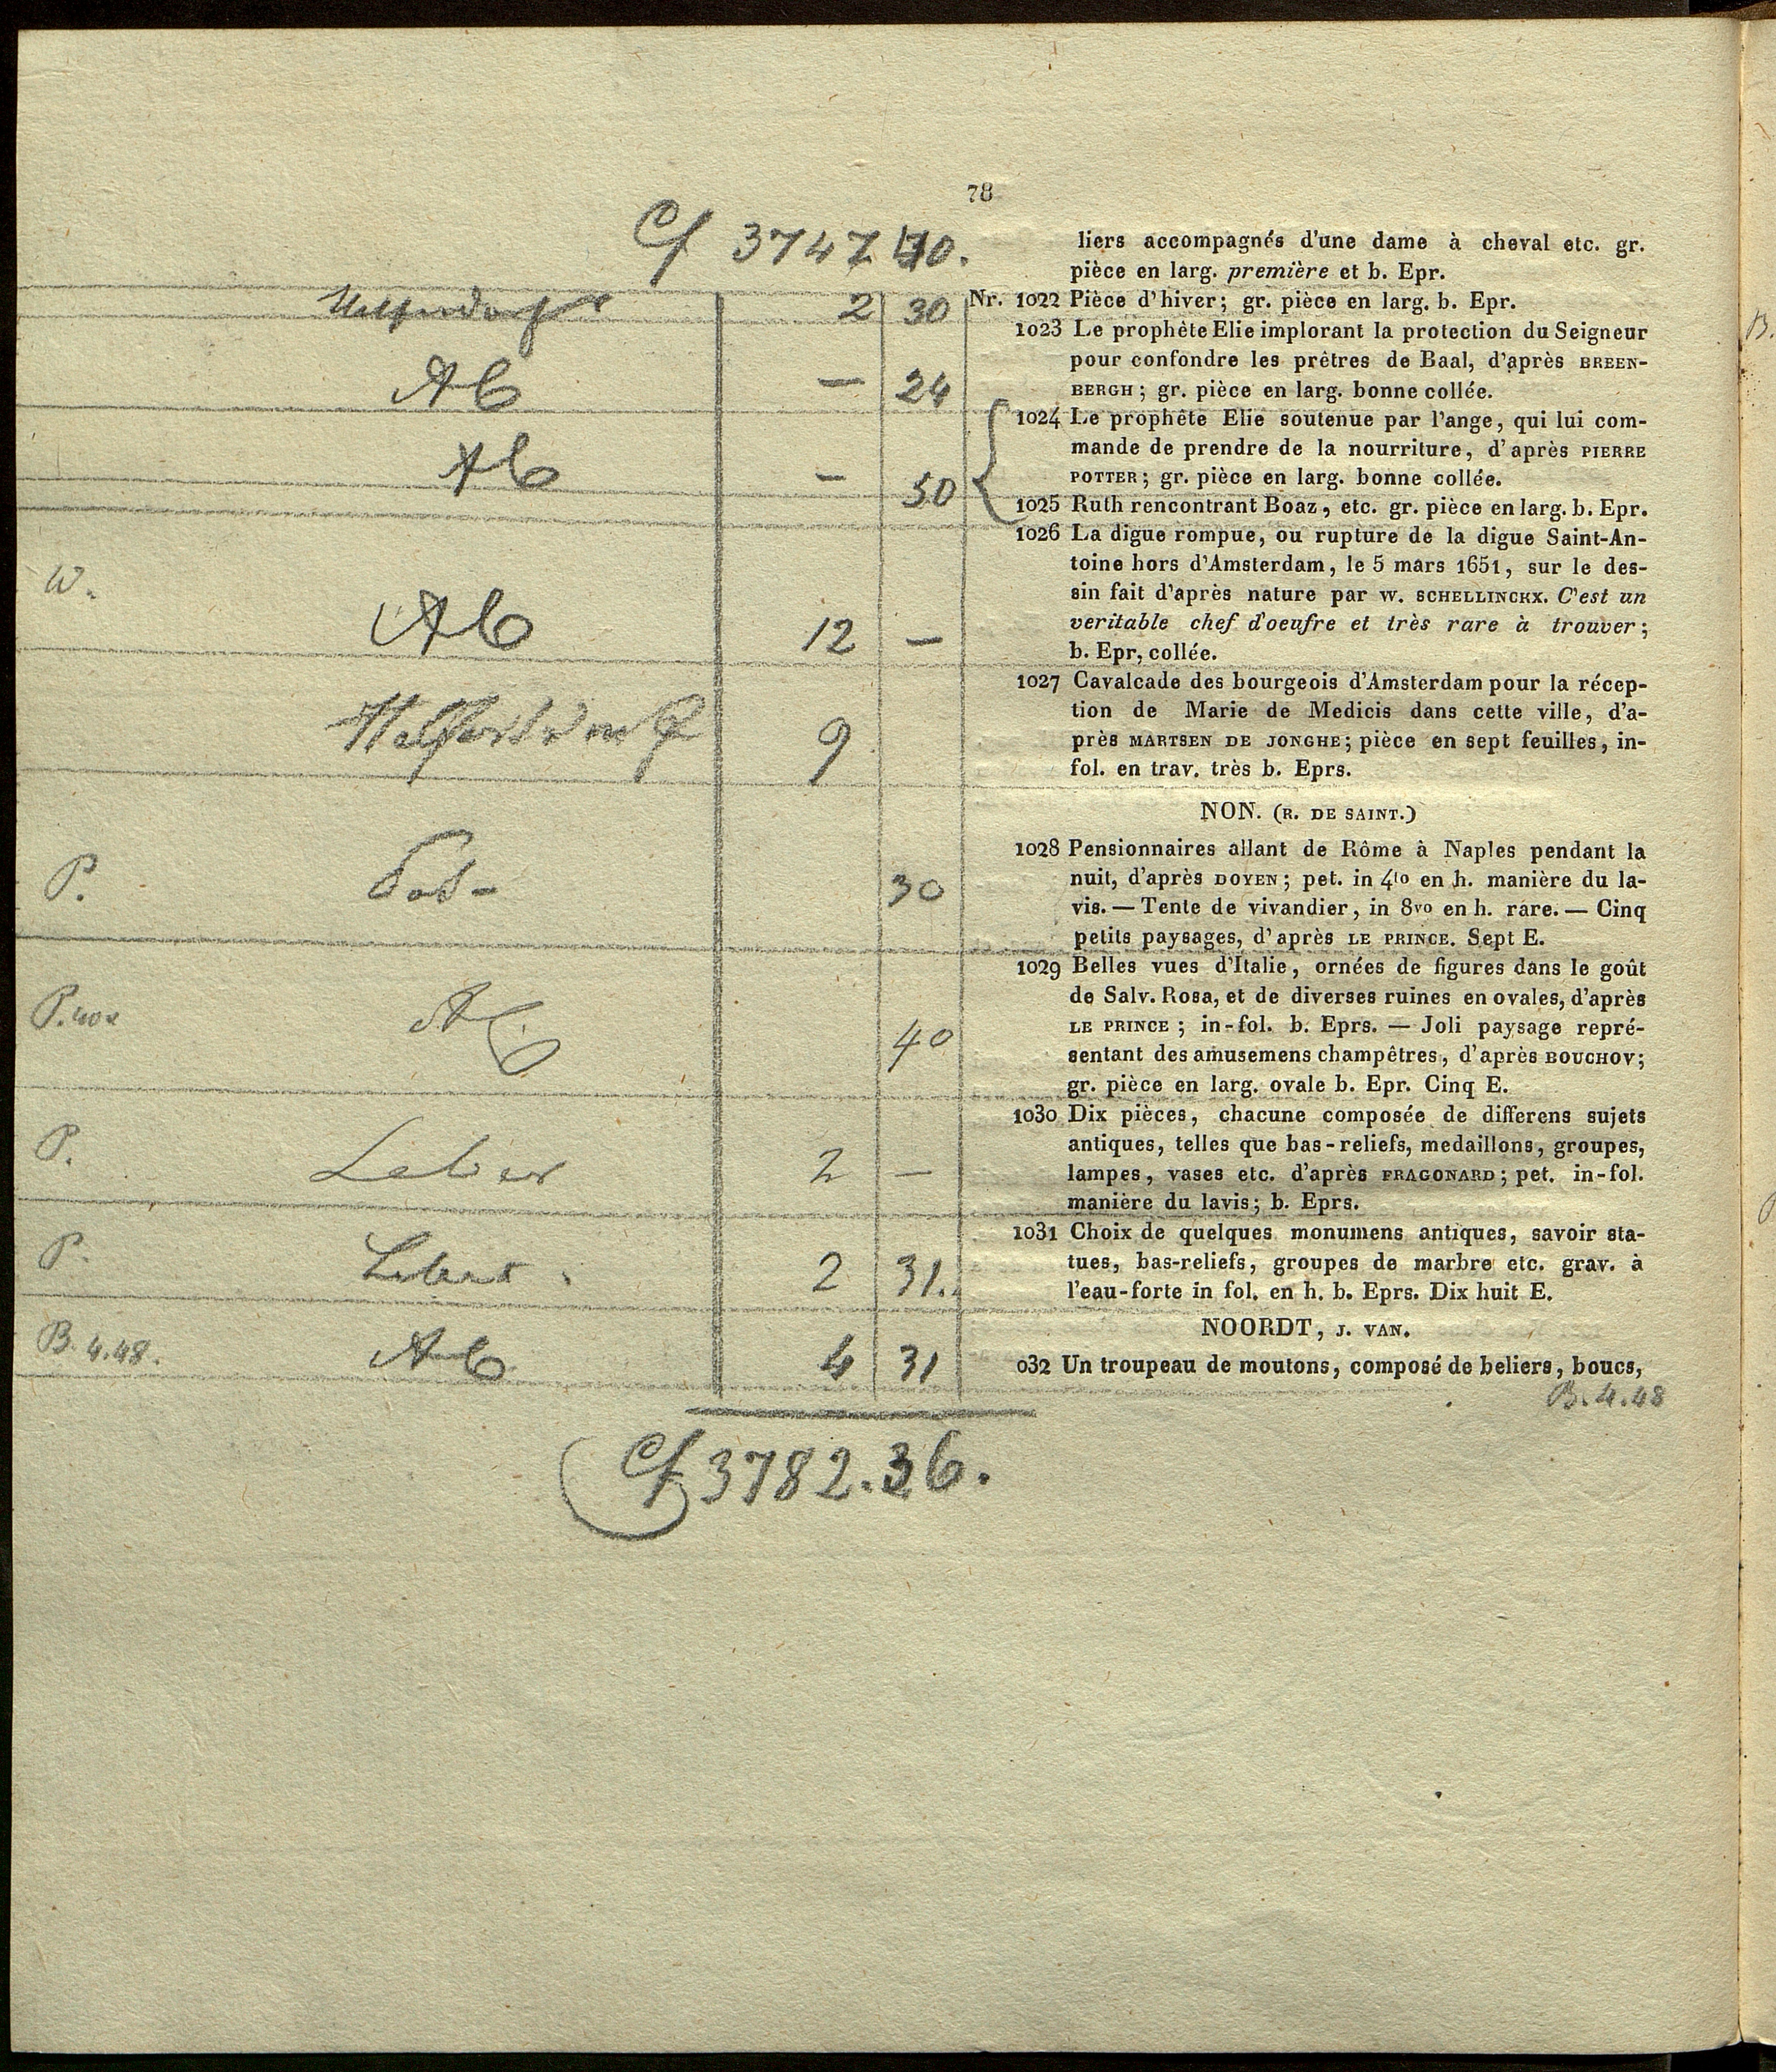 78
Cf 3747 40.
liers accompagnés d'une dame à cheval etc. gr.
pièce en larg. première et b. Epr.
2 30 Nr. 1022 Pièce d'hiver; gr. pièce en larg. b. Epr.
1023 Le prophète Elie implorant la protection du Seigneur
pour confondre les prêtres de Baal, d'après BREEN-
Ab — 24 BERGH; gr. pièce en larg. bonne collée.
1024 Le prophète Elie soutenue par l'ange, qui lui com-
mande de prendre de la nourriture, d'après PIERRE
Ab — 50 POTTER; gr. pièce en larg. bonne collée.
1025 Ruth rencontrant Boaz, etc. gr. pièce en larg. b. Epr.
1026 La digue rompue, ou rupture de la digue Saint-An-
toine hors d'Amsterdam, le 5 mars 1651, sur le des-
W. sin fait d'après nature par W. SCHELLINCKX. C'est un
veritable chef d'oeufre et très rare à trouver;
Ab 12 — b. Epr, collée.
1027 Cavalcade des bourgeois d'Amsterdam pour la récep-
tion de Marie de Medicis dans cette ville, d'a-
9 près MARTSEN DE JONGHE; pièce en sept feuilles, in-
fol. en trav. très b. Eprs.
NON. (R. DE SAINT.)
1028 Pensionnaires allant de Rôme à Naples pendant la
P. 30 nuit, d'après DOYEN; pet. in 4to en h. manière du la-
vis. — Tente de vivandier, in 8vo en h. rare. — Cinq
petits paysages, d'après LE PRINCE. Sept E.
1029 Belles vues d'Italie, ornées de figures dans le goût
de Salv. Rosa, et de diverses ruines en ovales, d'après
Ab 40 LE PRINCE; in-fol. b. Eprs. — Joli paysage repré-
sentant des amusemens champêtres, d'après BOUCHOV;
gr. pièce en larg. ovale b. Epr. Cinq E.
1030 Dix pièces, chacune composée de differens sujets
P. antiques, telles que bas-reliefs, medaillons, groupes,
2 — lampes, vases etc. d'après FRAGONARD; pet. in-fol.
manière du lavis; b. Eprs.
1031 Choix de quelques monumens antiques, savoir sta-
P. tues, bas-reliefs, groupes de marbre etc. grav. à
2 31. l'eau-forte in fol. en h. b. Eprs. Dix huit E.
NOORDT, J. VAN.
B. 4.48. Ab 4 31 032 Un troupeau de moutons, composé de beliers, boucs,
B. 4.48
Cf 3782.36.